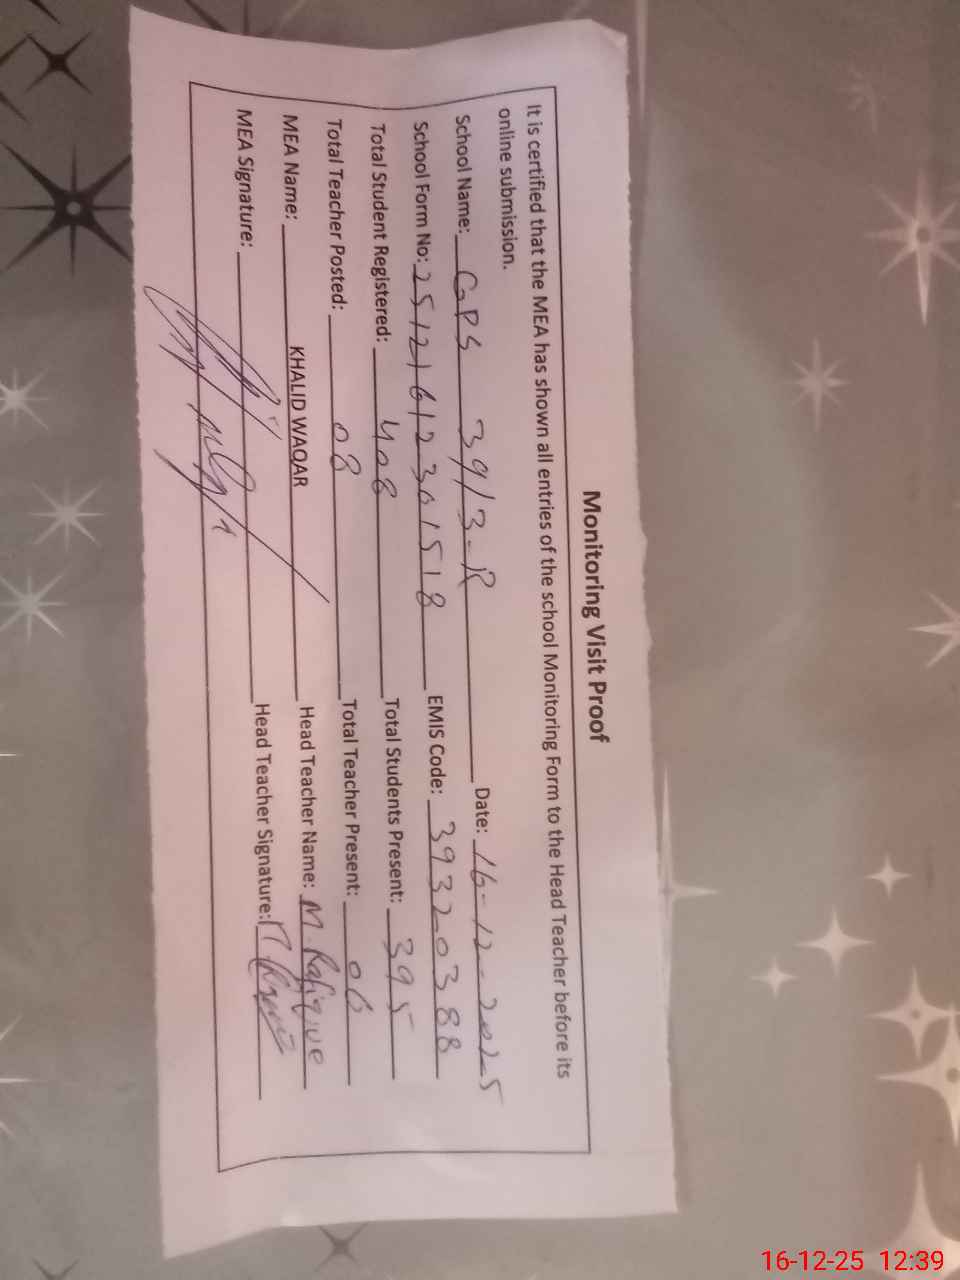 Monitoring Visit Proof
It is certified that the MEA has shown all entries of the school Monitoring Form to the Head Teacher before its
online submission.
School Name: GPS 39/3-R Date: 16-12-2025
School Form No: 25121612301518 EMIS Code: 39320388
Total Student Registered: 408 Total Students Present: 395
Total Teacher Posted: 08 Total Teacher Present: 06
MEA Name: KHALID WAQAR Head Teacher Name: M. Rafique
MEA Signature: Head Teacher Signature:
16-12-25 12:39